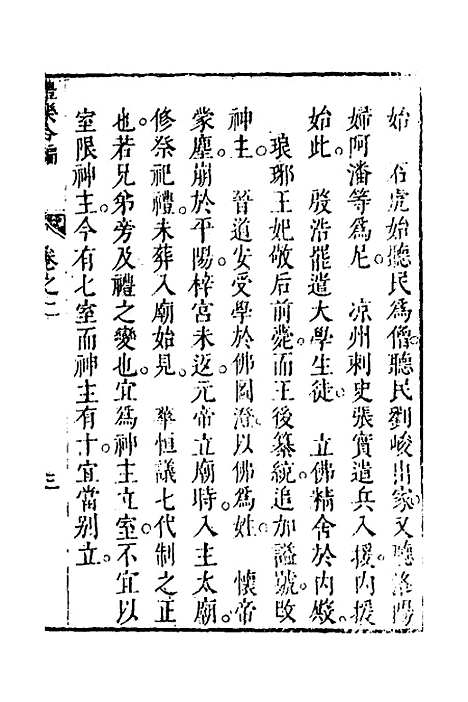 始　石虎始聽民爲僧。聽民劉峻出家。又聽洛陽
婦阿潘等爲尼。　凉州刺史張寔遣兵入援。内援
始此。　殷浩罷遣大學生徒　立佛精舍於内殿。
琅琊王妃敬后前薨。而王後纂統。追加謚號。改
神主。　晉道安受學於佛圖澄。以佛爲姓。　懷帝
蒙塵崩於平陽。梓宮未返。元帝立廟時。入主太廟。
修祭祀禮。未葬入廟始見。　華恒議七代制之正
也。若兄弟旁及禮之變也。宜爲神主立室。不宜以
室限神主。今有七室而神主有十。宜當别立。
禮樂合編　卷之二　三